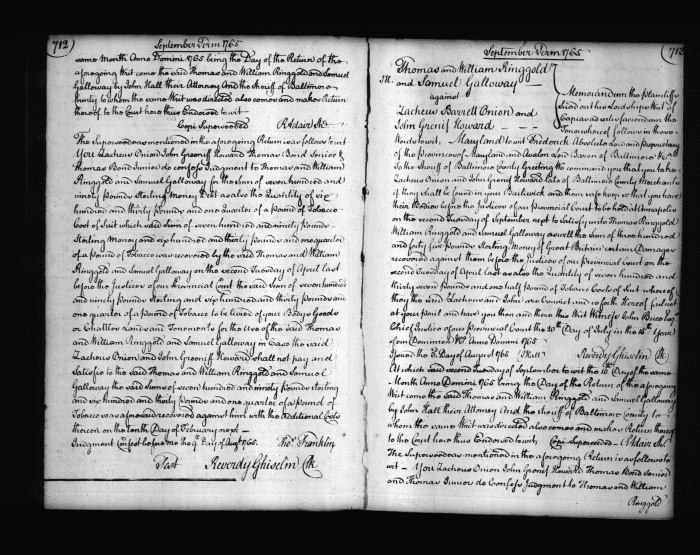 712)
September Term 1765
same month Anno Domini 1765 being the Day of the Return of the
aforegoing Writ come the said Thomas and William Ringgold and Samuel
Galloway by John Hall their Attorney And the Sheriff of Baltimore
County to whom the same Writ was directed also comes and makes Return
thereof to the Court here thus Endorsed to wit
Copi Supersedeed RAdair Shff
The Supersedeas mentioned in the aforegoing Return was follows to wit
You Zacheus Onion John Greeniff Howard Thomas Bond Senior &
Thomas Bond Junior do confess Judgment to Thomas and William
Ringgold and Samuel Galloway for the Sum of seven hundred and
ninety pounds Sterling Money Debt as also the Quantity of six
hundred and thirty pounds and one quarter of a pound of Tobacco
Cost of Suit which said Sum of seven hundred and ninety pounds
Sterling Money and six hundred and thirty pounds and one quarter
of a pound of Tobacco was recovered by the said Thomas and William
Ringgold and Samuel Galloway on the second Tuesday of April last
before the Justices of our Provincial Court the said Sum of seven hundred
and ninety pounds Sterling and six hundred and thirty pounds and
one quarter of a pound of Tobacco to be levied of your Bodys Goods
or Chattles Lands and Tenements for the Use of the said Thomas
and William Ringgold and Samuel Galloway in case the said
Zacheus Onion and John Greeniff Howard shall not pay and
Satisfie to the said Thomas and William Ringgold and Samuel
Galloway the said Sums of seven hundred and ninety pounds sterling
and six hundred and thirty pounds and one quarter of a pound of
Tobacco was aforesaid recovered against him with the additional Costs
thereon on the tenth Day of February next
Judgment Confest before me the 9 Day of Augt 1765. Thos Franklin
Test Reverdy Ghiselin Clk
September Term 1765
(713
Thomas and William Ringgold
and Samuel Galloway
against
Zacheus Barrett Onion and
John Greeniff Howard
Memorandum the plaintiffs
sued out his Lordships Writ of
Capias ad satisfaciendum the
tenor whereof follows in these
Words to wit, Maryland to wit Frederick Absolute Lord and Proprietary
of the Provinces of Maryland and Avalon Lord Baron of Baltimore &c
To the Sheriff of Baltimore County Greeting We command you that you take
Zacheus Onion and John Greeniff Howard late of Baltimore County Merchants
if they shall be found in your Bailiwick and them safe keep so that you have
their Bodies before the Justices of our Provincial Court to be held at Annapolis
on the second Tuesday of September next to Satisfy unto Thomas Ringgold
William Ringgold and Samuel Galloway as well the Sum of three hundred
and forty five pounds Sterling Money of Great Britain certain Damages
recovered against them before the Justices of our Provincial Court on the
second Tuesday of April last as also the Quantity of seven hundred and
thirty seven pounds and one half pound of Tobacco Costs of Suit whereof
they the said Zacheus and John are Convict and so forth Hereof fail not
at your peril and have you then and there this Writ Witness John Brice Esqr
Chief Justice of our Provincial Court the 20th Day of July in the 15th Year
of our Dominion &c Anno Domini 1765
Issued the 8 Day of August 1765 Reverdy Ghiselin Clk
At which said second Tuesday of September to wit the 10 Day of the same
Month Anno Domini 1765 being the Day of the Return of the aforegoing
Writ come the said Thomas and William Ringgold and Samuel Galloway
by John Hall their Attorney And the Sheriff of Baltimore County to
whom the same Writ was directed also comes and makes Return thereof
to the Court here thus Endorsed to wit, Copi Supersedeed RAdair Shff
The Supersedeas mentioned in the aforegoing Return is as follows to
wit You Zacheus Onion John Greeniff Howard Thomas Bond Senior
and Thomas Junior do Confess Judgment to Thomas and William
Ringgold